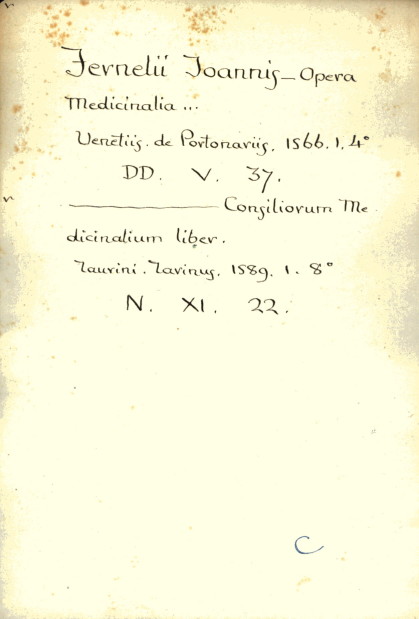 Fernelii Joannis – Opera
Medicinalia ...
Venetiis. de Portonariis. 1566. 1. 4°
DD. V. 37.
——— Consiliorum Me
dicinalium liber.
Taurini. Tarinus. 1589. 1. 8°
N. XI. 22.
C